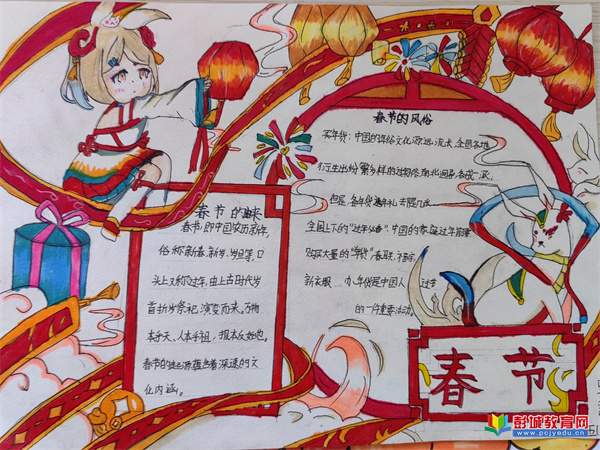 春节的由来
春节,即中国农历新年,
俗称新春、新岁、岁旦等,口
头上又称过年,由上古时代岁
首祈岁祭祀演变而来。万物
本乎天、人本乎祖,报本反始也。
春节的起源蕴含着深邃的文
化内涵。
春节的风俗
买年货:中国的年俗文化源远流长,全国各地
衍生出纷繁多样的过年习俗,南北迥异,各具
但是,备年货
全国上下的“过年必备”。中国的
购买大量的“年货”春联、
新衣服...办年货是中国人过
的一件重要活动。
春节
彭城教育网
www.pcjyedu.cn